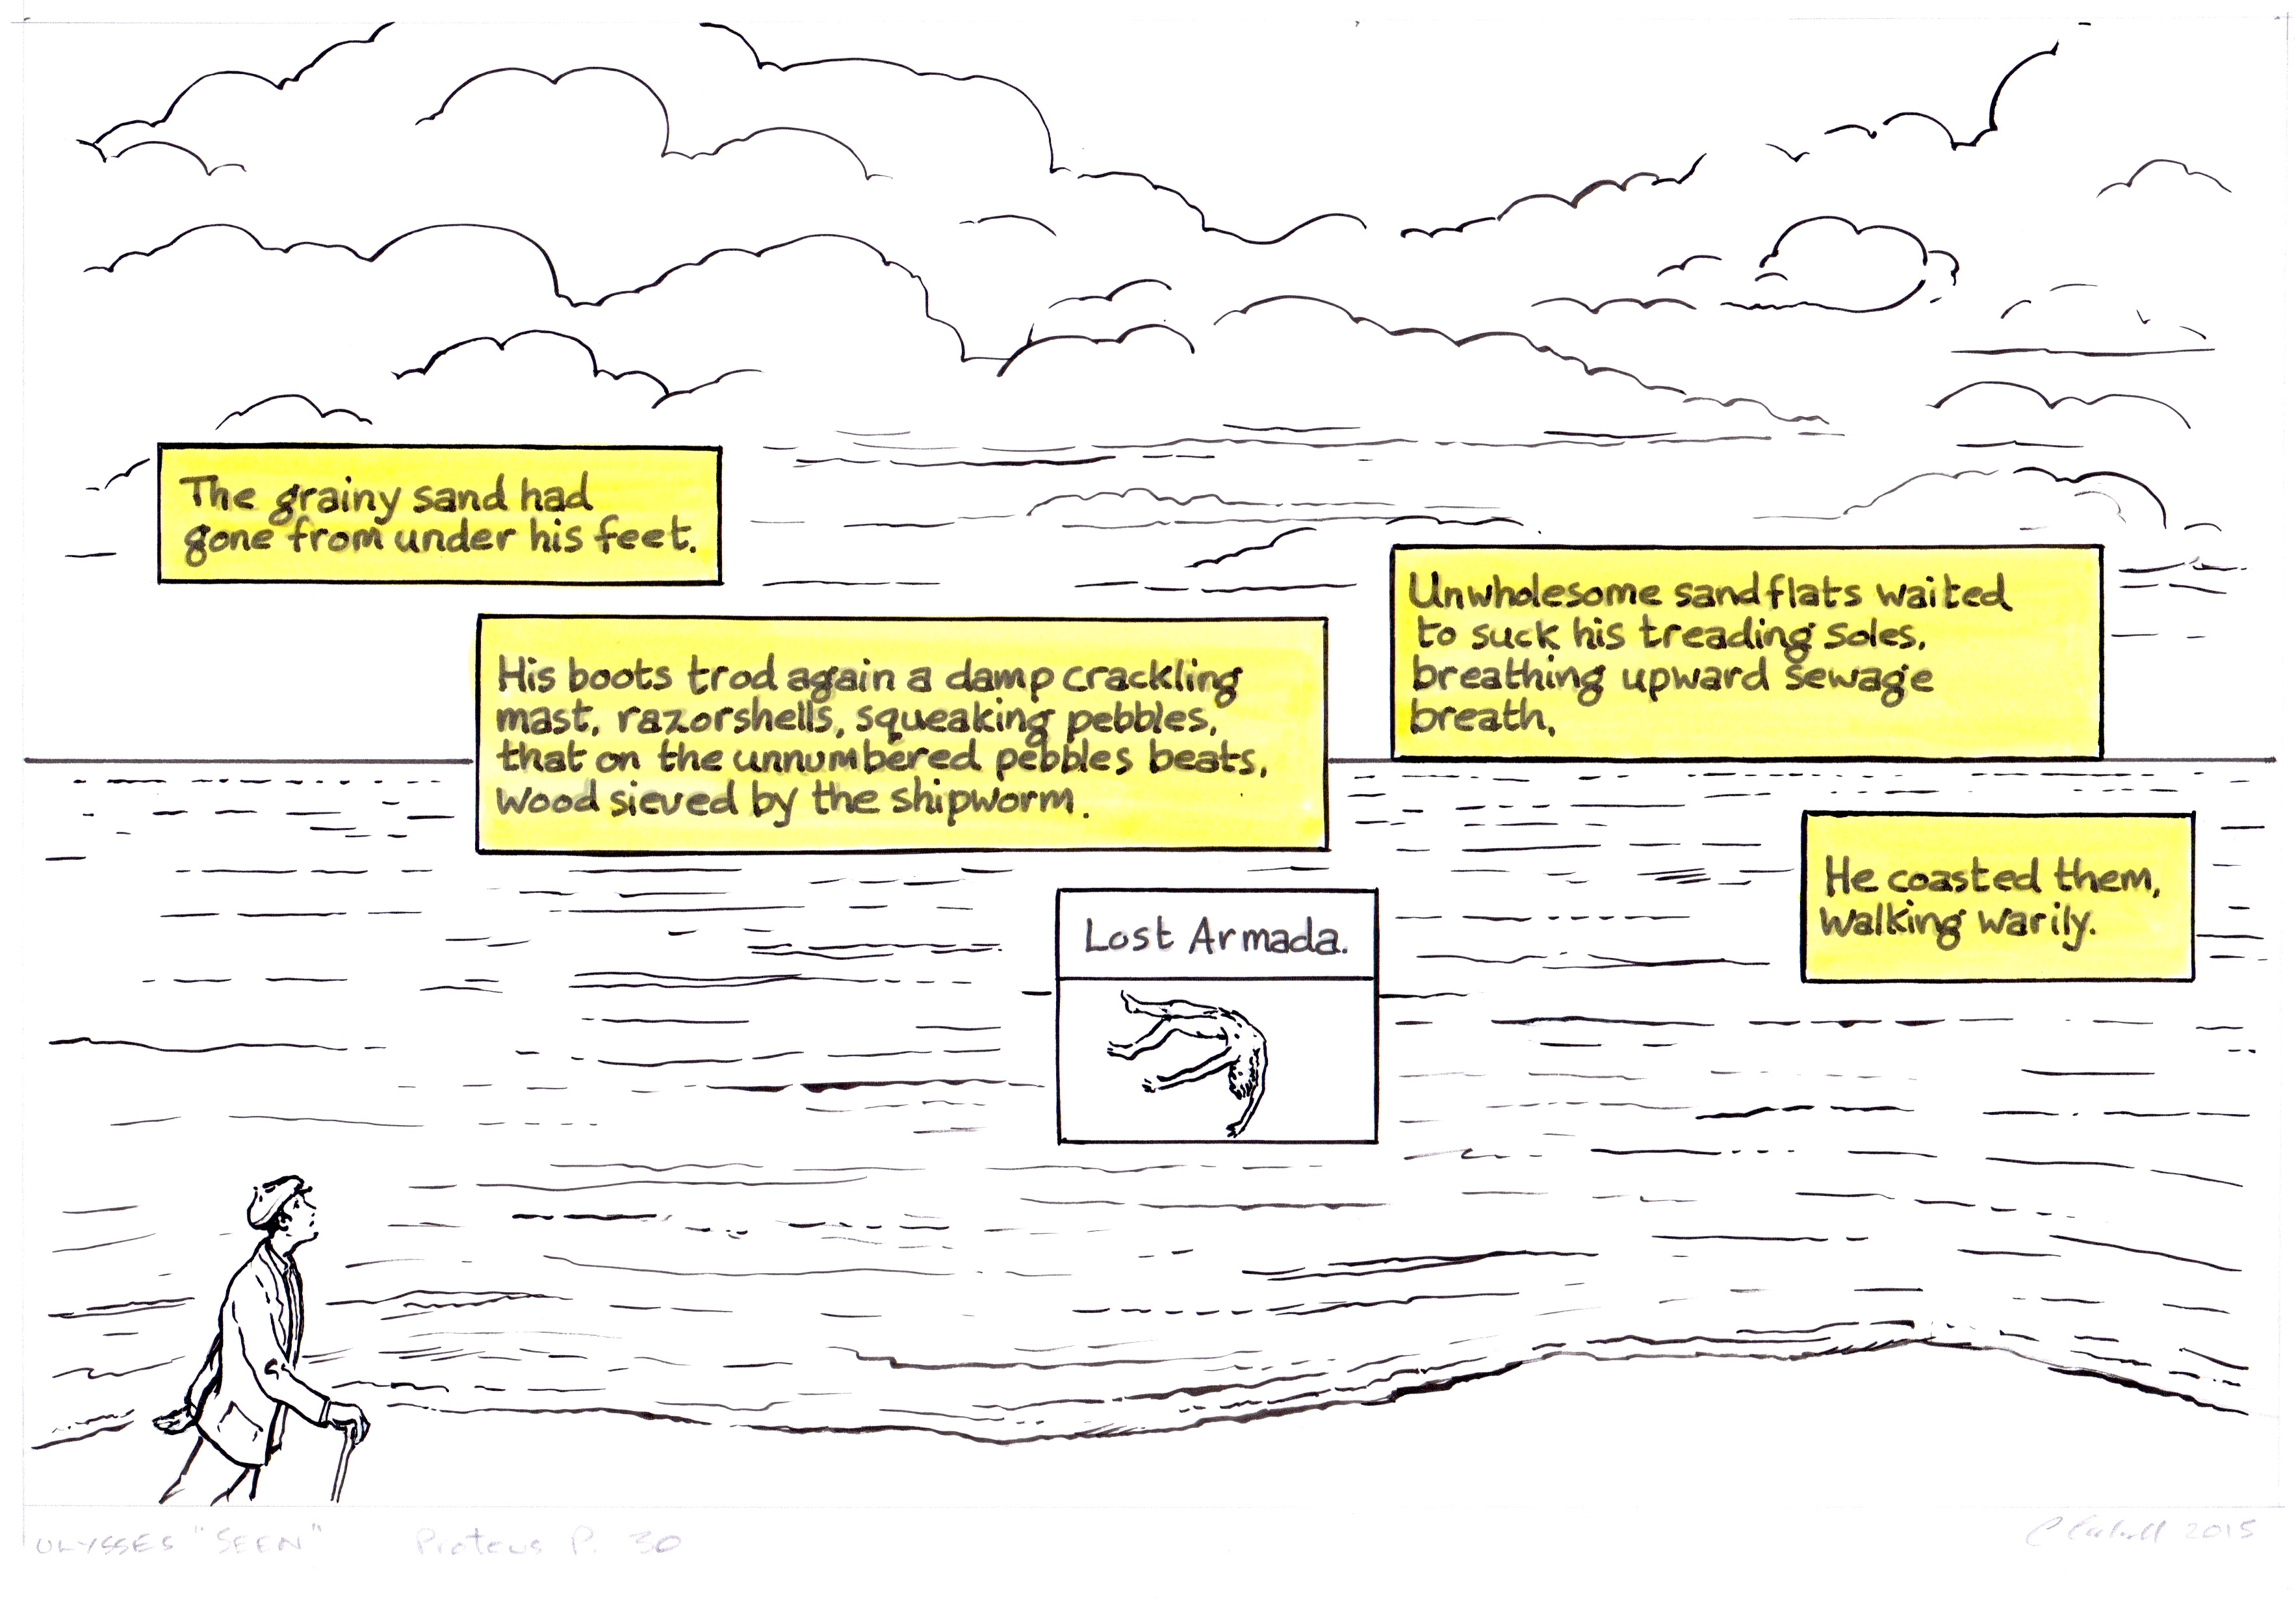 The grainy sand had
gone from under his feet.
His boots trod again a damp crackling
mast, razorshells, squeaking pebbles,
that on the unnumbered pebbles beats,
wood sieved by the shipworm.
Lost Armada.
Unwholesome sandflats waited
to suck his treading soles,
breathing upward sewage
breath.
He coasted them,
walking warily.
ULYSSES "SEEN" Proteus P. 30
2015